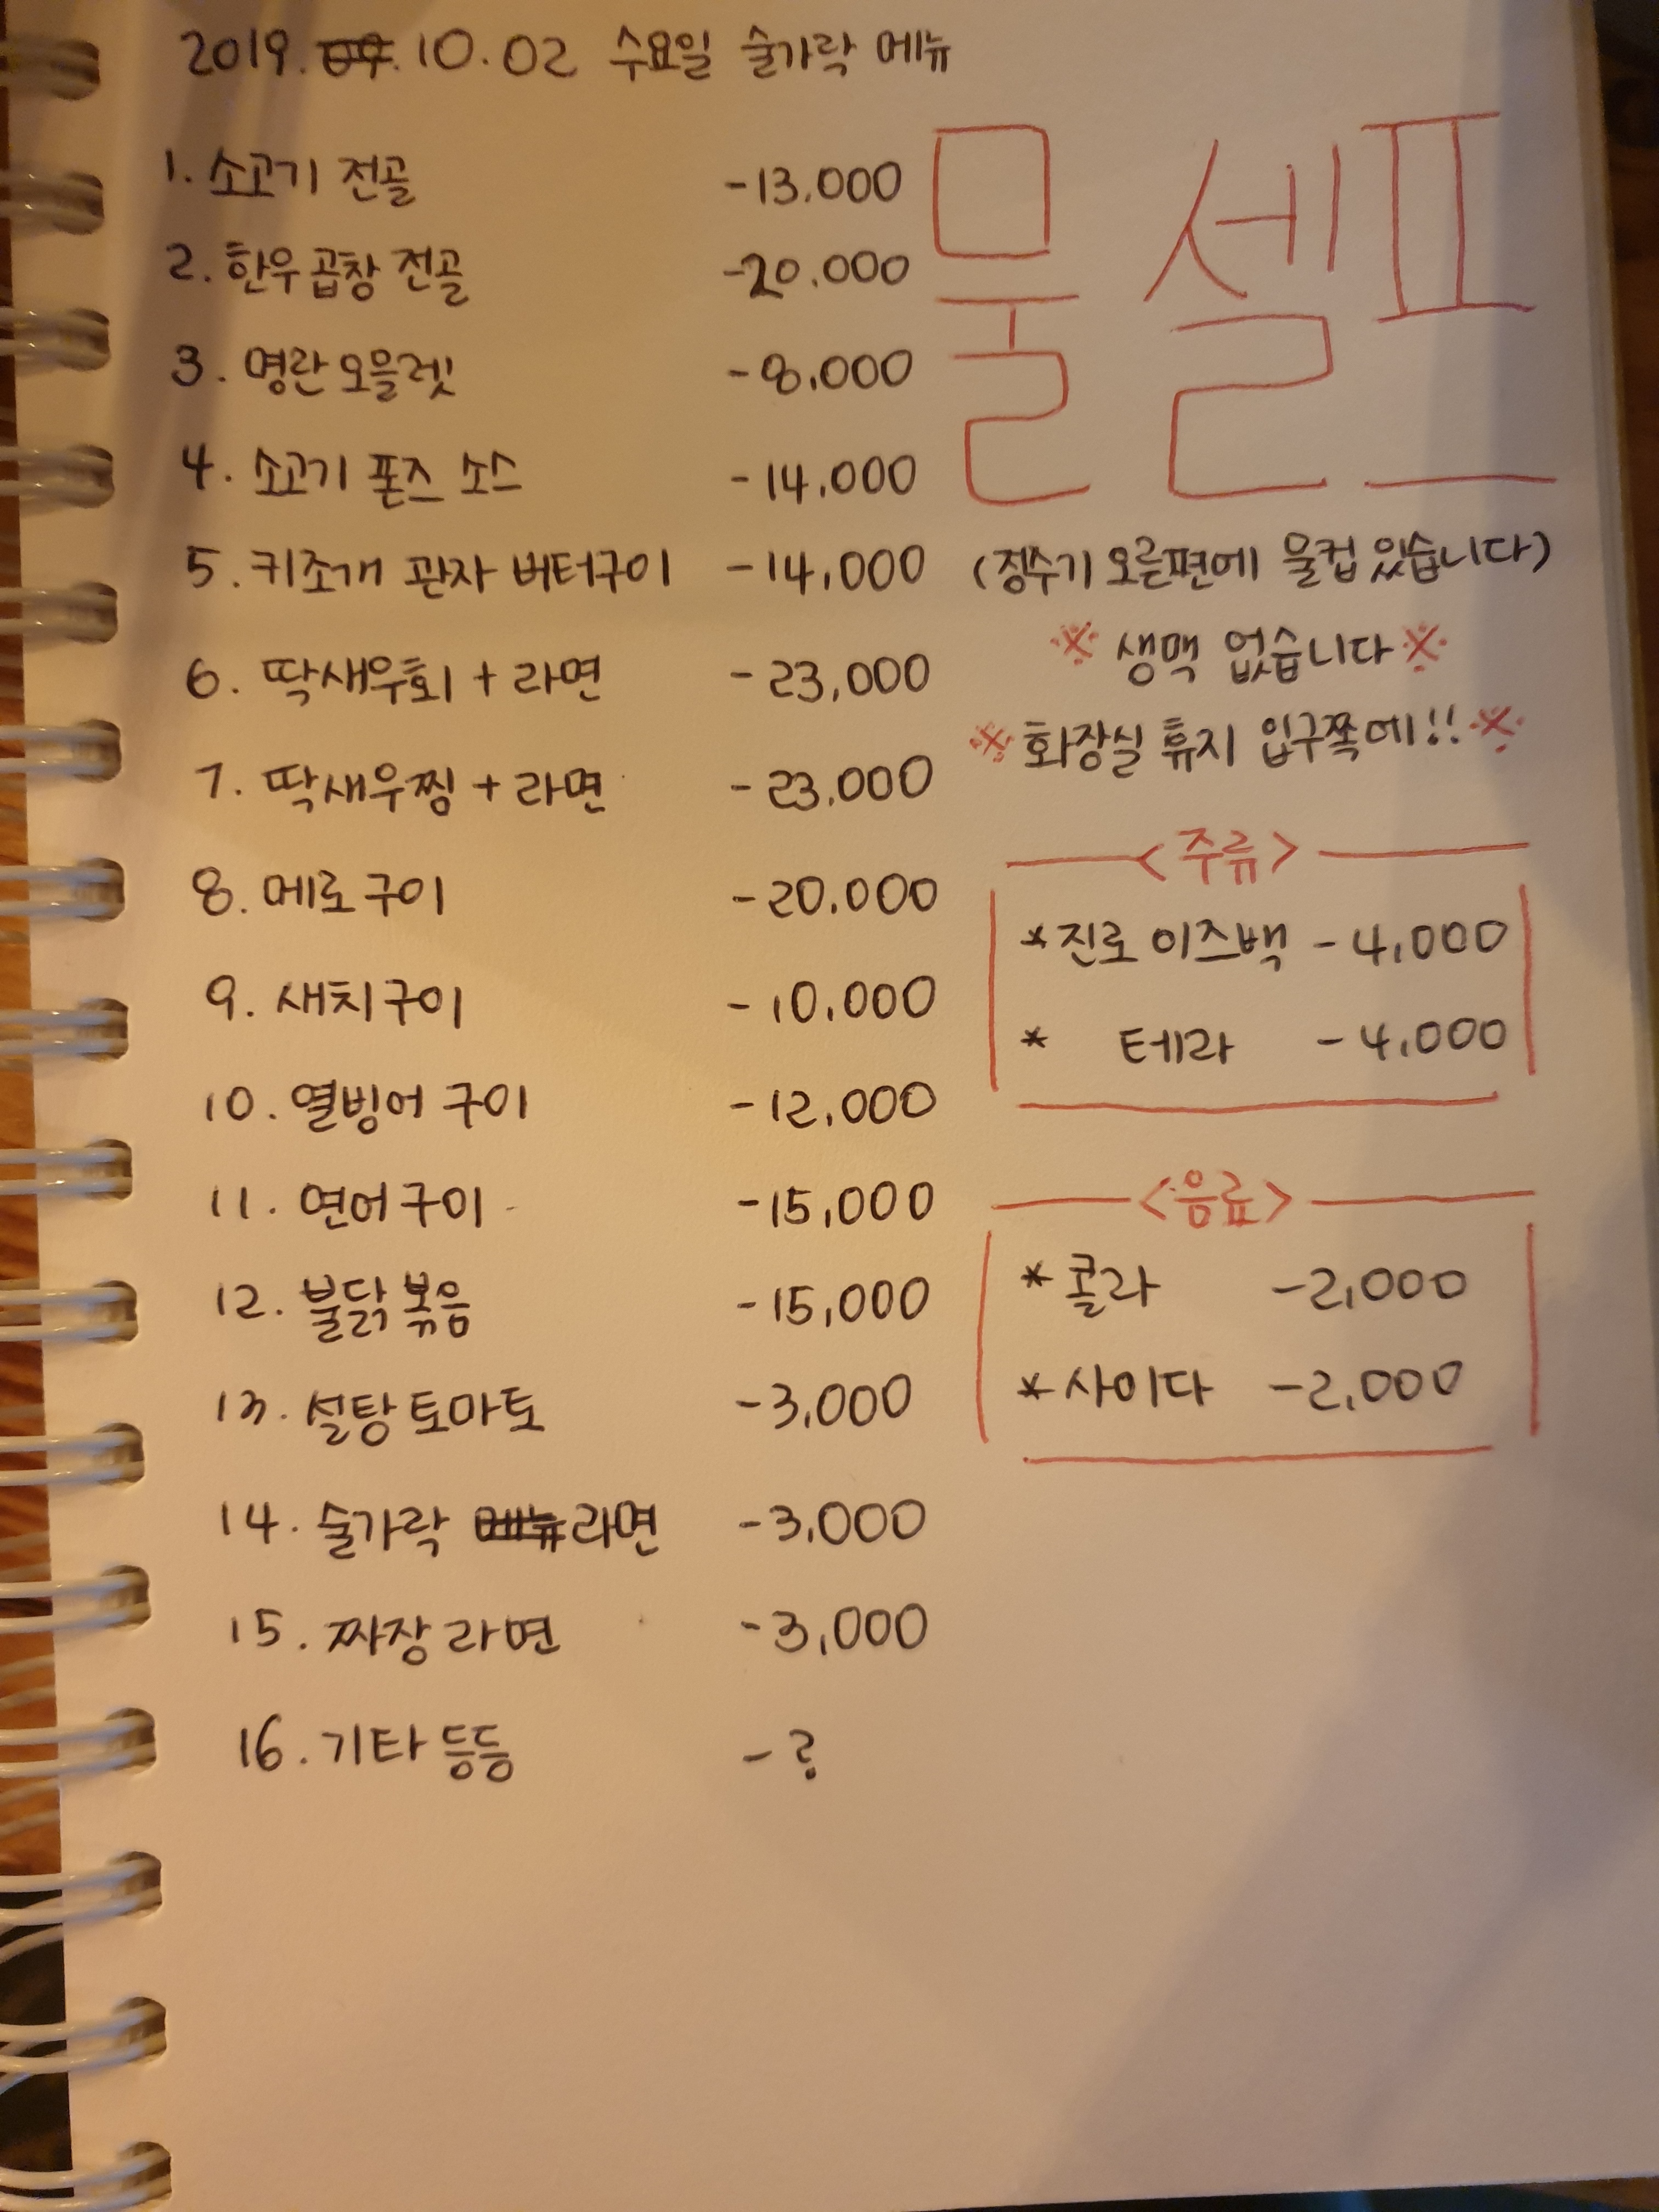 2019. 10.02 수요일 술가락 메뉴
1. 소고기 전골 -13,000
2. 한우곱창 전골 -20,000
3. 명란오믈렛 -8,000
4. 소고기 폰즈 소스 -14,000
5. 키조개 관자 버터구이 -14,000
6. 딱새우회 + 라면 -23,000
7. 딱새우찜 + 라면 -23,000
8. 메로구이 -20,000
9. 새치구이 -10,000
10. 열빙어 구이 -12,000
11. 연어구이 -15,000
12. 불닭볶음 -15,000
13. 설탕토마토 -3,000
14. 술가락 라면 -3,000
15. 짜장라면 -3,000
16. 기타 등등 - ?
물 셀프
(정수기 오른편에 물컵 있습니다)
※ 생맥 없습니다 ※
※ 화장실 휴지 입구쪽에!! ※
<주류>
*진로이즈백 -4,000
* 테라 -4,000
<음료>
*콜라 -2,000
*사이다 -2,000